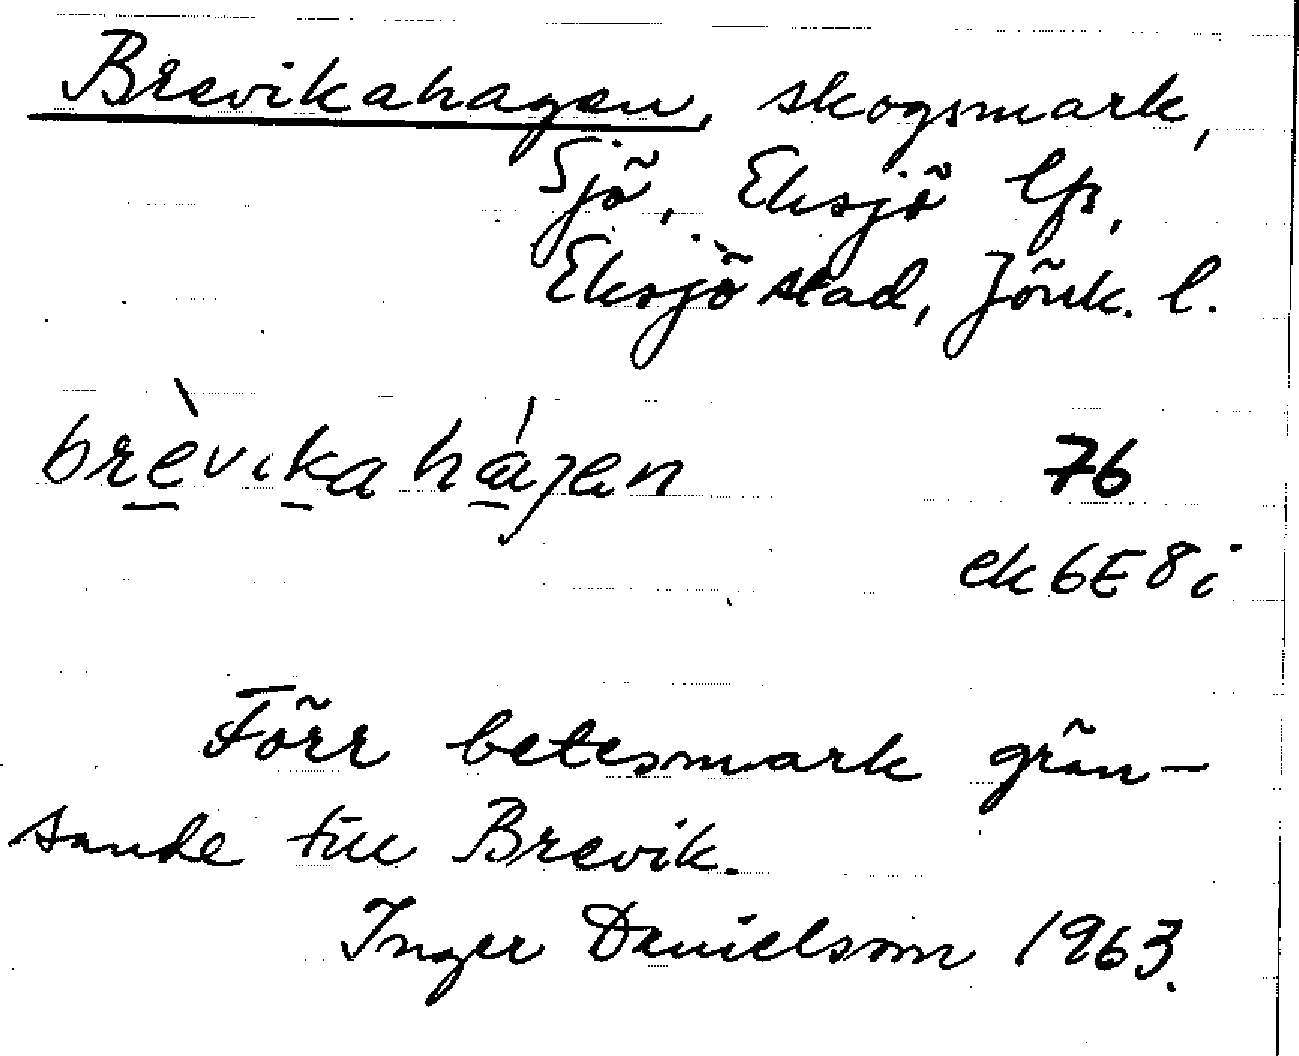 Brevikahagen, skogsmark,
Sjö, Eksjö lfs,
Eksjö stad, Jönk. l.
brèvıkahájen 76
ek 6E8i
Förr betesmark grän-
sande till Brevik.
Inger Danielsson 1963.